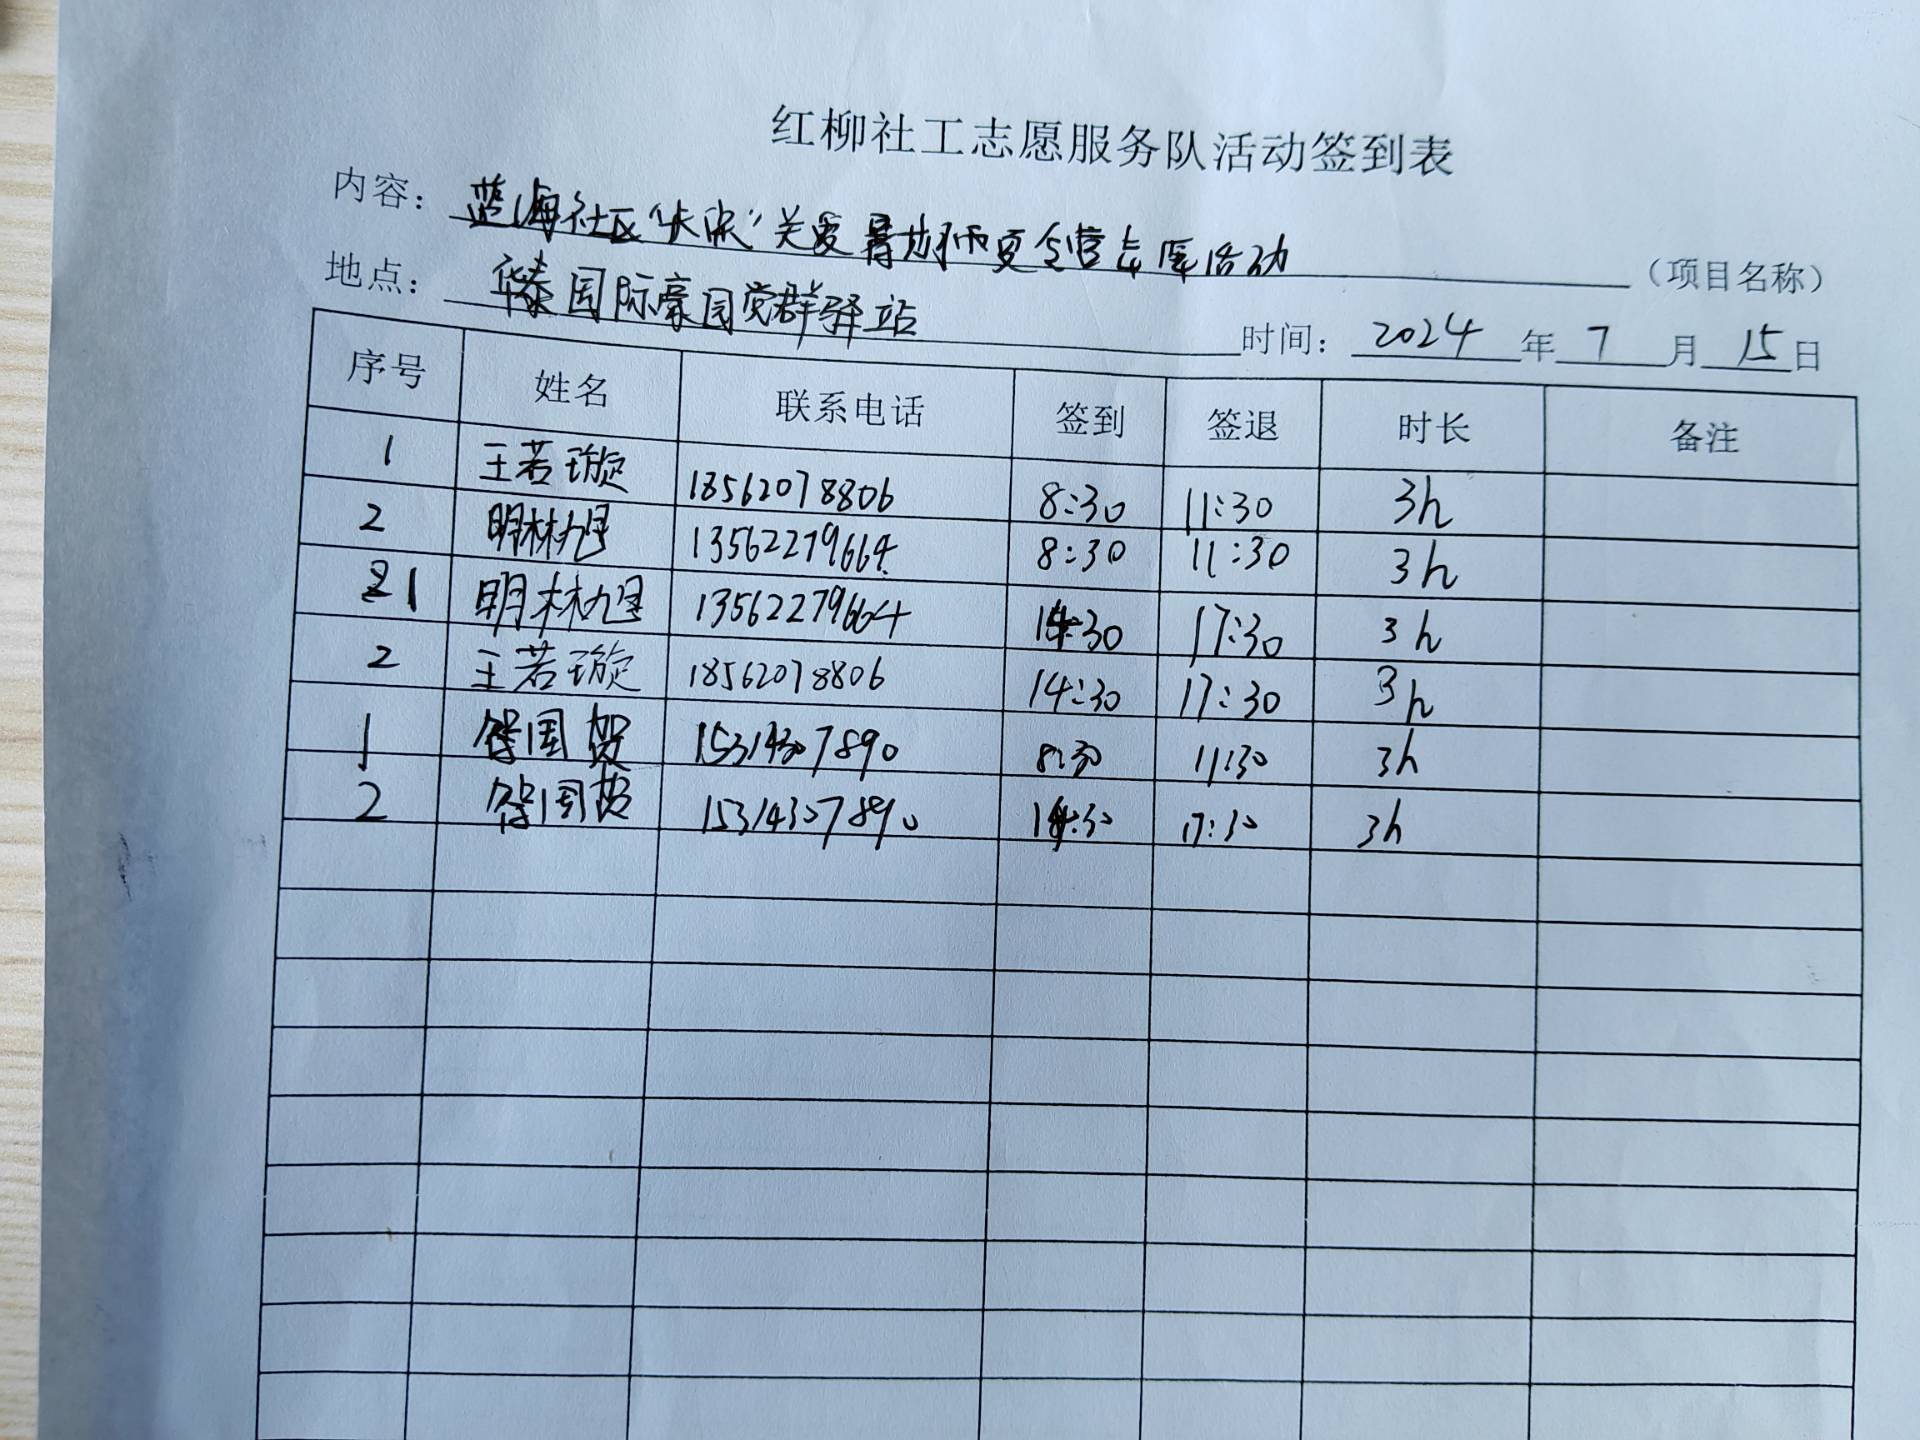 红柳社工志愿服务队活动签到表
内容： 蓝海社区 关爱暑期 夏令营志愿活动 （项目名称）
地点： 华泰国际豪园党群驿站 时间： 2024 年 7 月 15 日
序号 姓名 联系电话 签到 签退 时长 备注
1 王若璇 18562078806 8:30 11:30 3h
2 明林旭 13562279664 8:30 11:30 3h
1 明林旭 13562279664 14:30 17:30 3h
2 王若璇 18562078806 14:30 17:30 3h
1 国贺 15314307890 8:30 11:30 3h
2 国贺 15314307890 14:30 17:30 3h